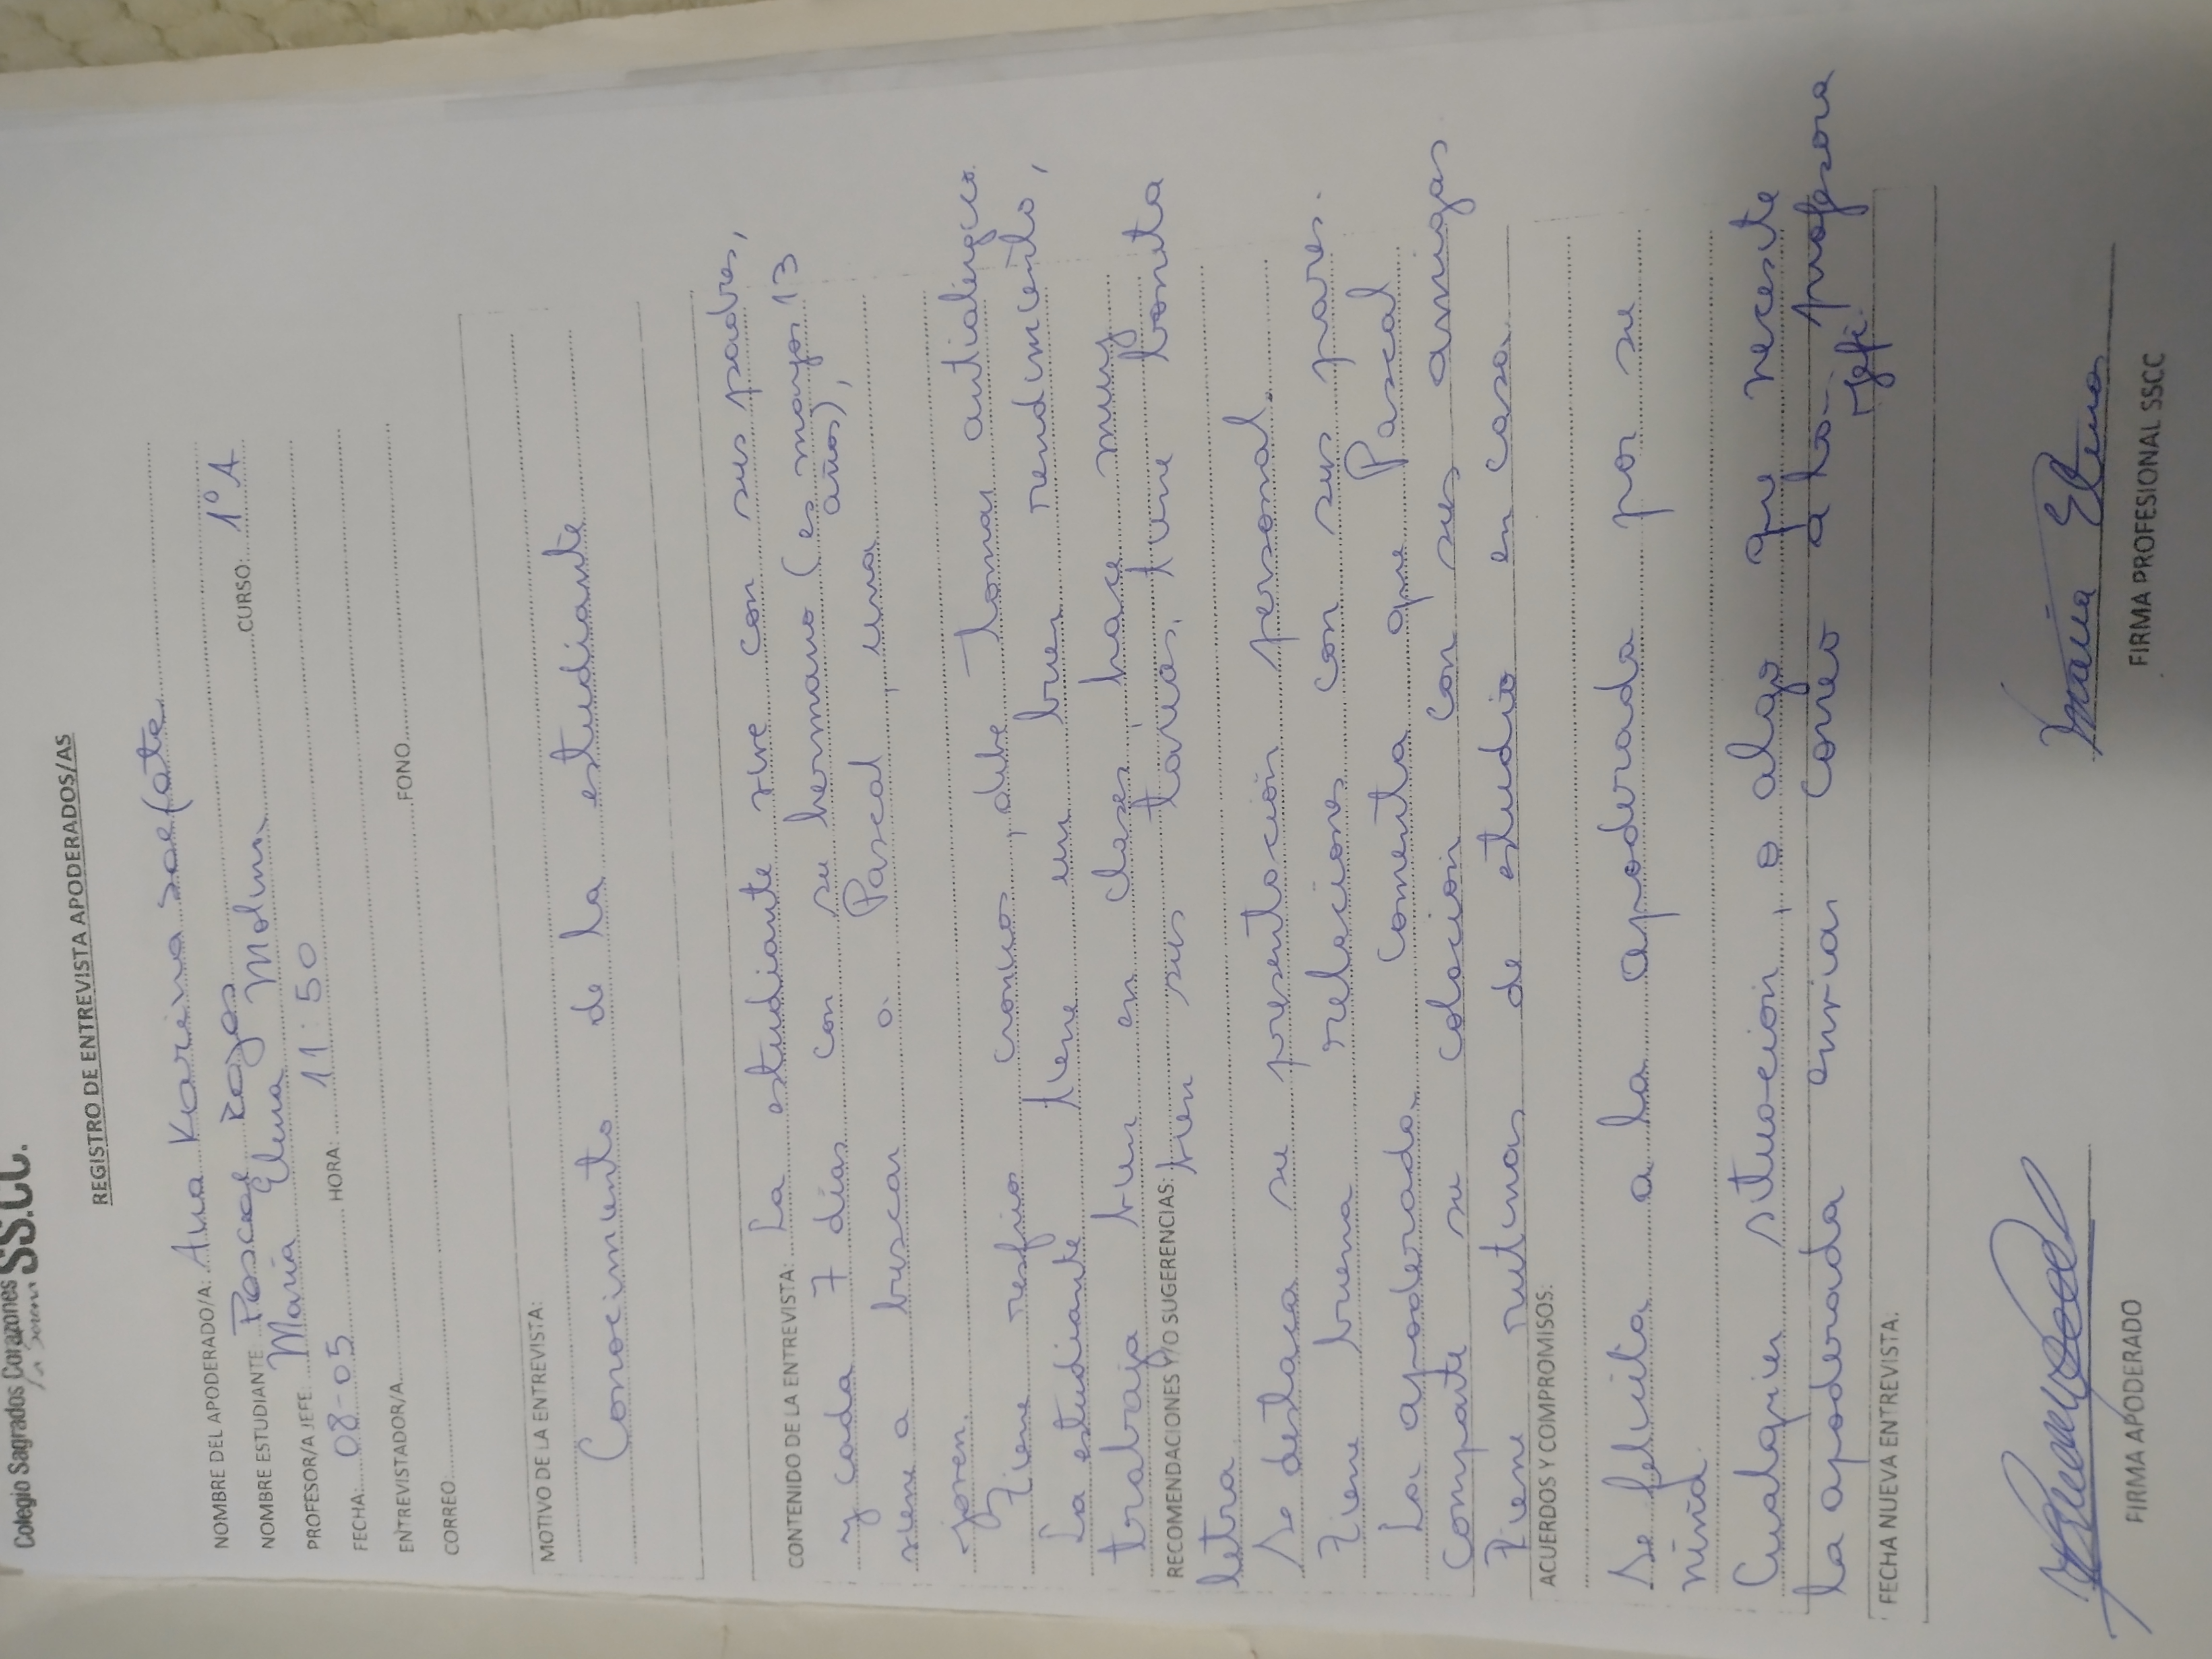 Colegio Sagrados Corazones SS.CC.
La Serena
REGISTRO DE ENTREVISTA APODERADOS/AS
NOMBRE DEL APODERADO/A: Ana Karina
NOMBRE ESTUDIANTE Pascal Rojas CURSO: 1° A
PROFESOR/A JEFE: María Elena Molina
FECHA: 08-05 HORA: 11:50
ENTREVISTADOR/A
CORREO: FONO
MOTIVO DE LA ENTREVISTA:
Conocimiento de la estudiante
CONTENIDO DE LA ENTREVISTA: La estudiante vive con sus padres,
y cada 7 días con su hermano (es mayor 13
años),
viene a buscar a Pascal, una
joven.
Tiene resfrio cronico, debe tomar antialergico
La estudiante tiene un buen rendimiento,
trabaja bien en clases, hace muy
RECOMENDACIONES Y/O SUGERENCIAS: bien sus tareas, tiene bonita
letra
Se destaca su presentación personal.
Tiene buena relaciones con sus pares.
La apoderada comenta que Pascal
Comparte su colacion con sus amigas
Tiene rutinas de estudio en casa.
ACUERDOS Y COMPROMISOS:
Se felicita a la apoderada por su
niña.
Cualquier situación, o algo que necesite
la apoderada enviar correo a la profesora
jefe.
FECHA NUEVA ENTREVISTA:
María Elena
FIRMA APODERADO FIRMA PROFESIONAL SSCC